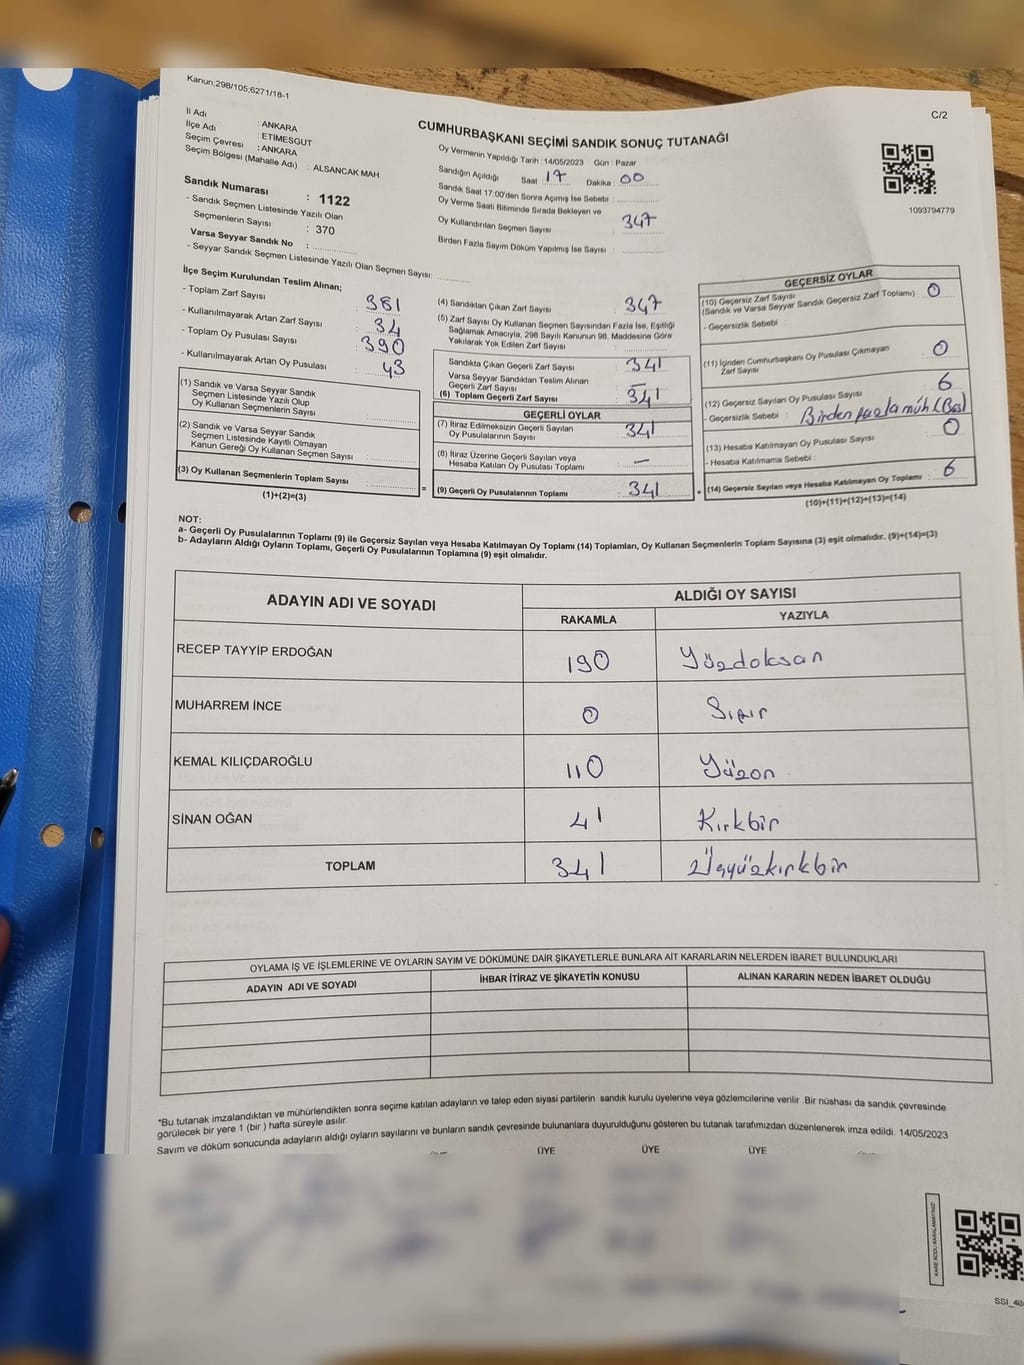 Kanun;298/105;6271/18-1
C/2
CUMHURBAŞKANI SEÇİMİ SANDIK SONUÇ TUTANAĞI
İl Adı : ANKARA
İlçe Adı : ETİMESGUT
Seçim Çevresi : ANKARA
Seçim Bölgesi (Mahalle Adı) : ALSANCAK MAH.
Sandık Numarası : 1122
- Sandık Seçmen Listesinde Yazılı Olan
Seçmenlerin Sayısı : 370
Varsa Seyyar Sandık No :
- Seyyar Sandık Seçmen Listesinde Yazılı Olan Seçmen Sayısı:
Oy Vermenin Yapıldığı Tarih :14/05/2023 Gün : Pazar
Sandığın Açıldığı Saat : 17 Dakika : 00
Sandık Saat 17:00'den Sonra Açımış İse Sebebi :
Oy Verme Saati Bitiminde Sırada Bekleyen ve
Oy Kullandırılan Seçmen Sayısı : 347
Birden Fazla Sayım Döküm Yapılmış İse Sayısı :
1093794779
İlçe Seçim Kurulundan Teslim Alınan;
- Toplam Zarf Sayısı : 381
- Kullanılmayarak Artan Zarf Sayısı : 34
- Toplam Oy Pusulası Sayısı : 390
- Kullanılmayarak Artan Oy Pusulası : 43
(1) Sandık ve Varsa Seyyar Sandık
Seçmen Listesinde Yazılı Olup
Oy Kullanan Seçmenlerin Sayısı :
(2) Sandık ve Varsa Seyyar Sandık
Seçmen Listesinde Kayıtlı Olmayan
Kanun Gereği Oy Kullanan Seçmen Sayısı :
(3) Oy Kullanan Seçmenlerin Toplam Sayısı :
(1)+(2)=(3)
(4) Sandıktan Çıkan Zarf Sayısı : 347
(5) Zarf Sayısı Oy Kullanan Seçmen Sayısından Fazla İse, Eşitliği
Sağlamak Amacıyla, 298 Sayılı Kanunun 98. Maddesine Göre
Yakılarak Yok Edilen Zarf Sayısı :
Sandıkta Çıkan Geçerli Zarf Sayısı : 341
Varsa Seyyar Sandıktan Teslim Alınan
Geçerli Zarf Sayısı : —
(6) Toplam Geçerli Zarf Sayısı : 341
GEÇERLİ OYLAR
(7) İtiraz Edilmeksizin Geçerli Sayılan
Oy Pusulalarının Sayısı : 341
(8) İtiraz Üzerine Geçerli Sayılan veya
Hesaba Katılan Oy Pusulası Toplamı : —
= (9) Geçerli Oy Pusulalarının Toplamı : 341
GEÇERSİZ OYLAR
(10) Geçersiz Zarf Sayısı
(Sandık ve Varsa Seyyar Sandık Geçersiz Zarf Toplamı) : 0
- Geçersizlik Sebebi :
(11) İçinden Cumhurbaşkanı Oy Pusulası Çıkmayan
Zarf Sayısı : 0
(12) Geçersiz Sayılan Oy Pusulası Sayısı : 6
- Geçersizlik Sebebi : Birden fazla müh(Bas)
(13) Hesaba Katılmayan Oy Pusulası Sayısı : 0
- Hesaba Katılmama Sebebi :
+ (14) Geçersiz Sayılan veya Hesaba Katılmayan Oy Toplamı : 6
(10)+(11)+(12)+(13)=(14)
NOT:
a- Geçerli Oy Pusulalarının Toplamı (9) ile Geçersiz Sayılan veya Hesaba Katılmayan Oy Toplamı (14) Toplamları, Oy Kullanan Seçmenlerin Toplam Sayısına (3) eşit olmalıdır. (9)+(14)=(3)
b- Adayların Aldığı Oyların Toplamı, Geçerli Oy Pusulalarının Toplamına (9) eşit olmalıdır.
ADAYIN ADI VE SOYADI
ALDIĞI OY SAYISI
RAKAMLA YAZIYLA
RECEP TAYYİP ERDOĞAN 190 Yüzdoksan
MUHARREM İNCE 0 Sıfır
KEMAL KILIÇDAROĞLU 110 Yüzon
SİNAN OĞAN 41 Kırkbir
TOPLAM 341 Üçyüzkırkbir
OYLAMA İŞ VE İŞLEMLERİNE VE OYLARIN SAYIM VE DÖKÜMÜNE DAİR ŞİKAYETLERLE BUNLARA AİT KARARLARIN NELERDEN İBARET BULUNDUKLARI
ADAYIN ADI VE SOYADI İHBAR İTİRAZ VE ŞİKAYETİN KONUSU ALINAN KARARIN NEDEN İBARET OLDUĞU
*Bu tutanak imzalandıktan ve mühürlendikten sonra seçime katılan adayların ve talep eden siyasi partilerin sandık kurulu üyelerine veya gözlemcilerine verilir .Bir nüshası da sandık çevresinde
görülecek bir yere 1 (bir ) hafta süreyle asılır.
Sayım ve döküm sonucunda adayların aldığı oyların sayılarını ve bunların sandık çevresinde bulunanlara duyurulduğunu gösteren bu tutanak tarafımızdan düzenlenerek imza edildi. 14/05/2023
ÜYE ÜYE ÜYE
KARE KODU KARALAMAYINIZ!